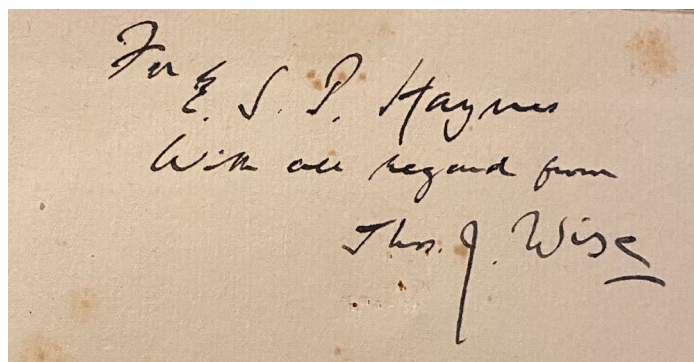 For
E. S. P. Haynes
With all regard from
Thos. J. Wise